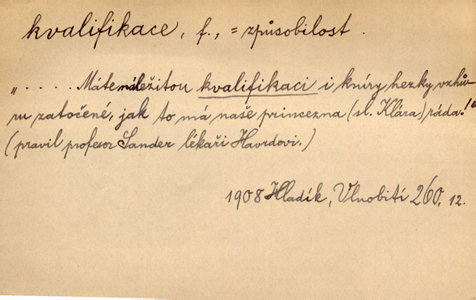 kvalifikace, f., = způsobilost.
„ . . . . Máte náležitou kvalifikaci i kníry hezky vzhů-
ru zatočené, jak to má naše princezna (sl. Klára) ráda!“
(pravil profesor Sander lékaři Havrdovi.)
1908 Hladík, Vlnobití 260, 12.